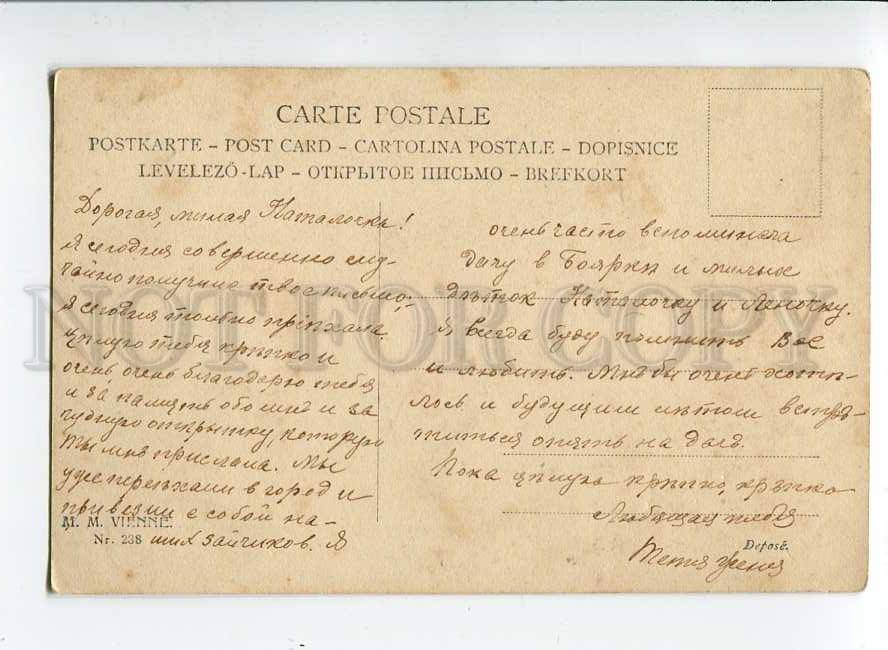 CARTE POSTALE
POSTKARTE – POST CARD – CARTOLINA POSTALE – DOPISNICE
LEVELEZŐ-LAP – ОТКРЫТОЕ ПИСЬМО – BREFKORT
Дорогая, милая Наталочка!
Я сегодня совершенно слу-
чайно получила твое письмо;
я сегодня только пріѣхала.
Цѣлую тебя крѣпко и
очень очень благодарю тебя
и за память обо мнѣ и за
чудную открытку, которую
ты мнѣ прислала. Мы
уже переѣхали в город и
привезли с собой на-
ших зайчиков. Я
очень часто вспоминала
дачу в Боярки и милых
дѣток Наталочку и Леночку.
Я всегда буду помнить Вас
и любить. Мнѣ бы очень хотѣ-
лось и будущим лѣтом встрѣ-
титься опять на дачѣ.
Пока цѣлую крѣпко, крѣпко
Любящая тебя
Тетя Женя
M. M. VIENNE.
Nr. 238
Deposé.
NOT FOR COPY